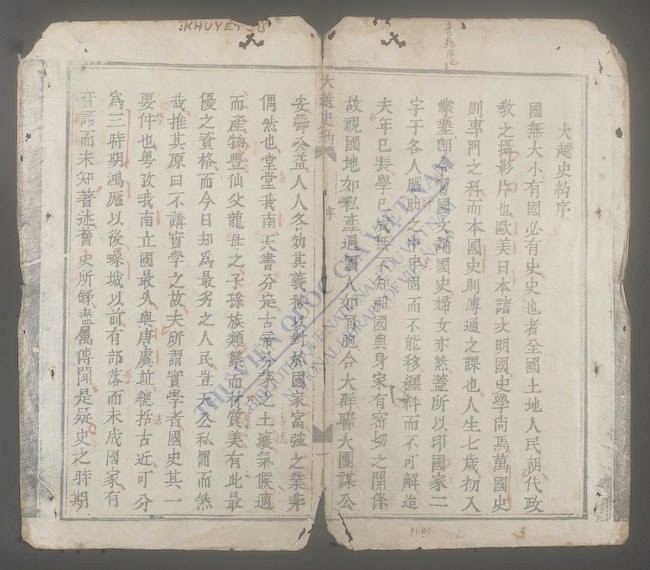 大越史約序
國無大小有國必有史史也者全國土地人民朝代政
教之攝影片也歐美日本諸文明國史學尚焉萬國史
則專門之科而本國史則溥通之課也人生七歲初入
黌塾即習國文誦國史婦女亦然蓋所以印國家二
字于各人腦助之中牢固而不能移纏糾而不可解迨
夫年已長學已無不知國與身家有密切之關係
故視國地如私產過國人如同胞合大群聯大團謀公
大越史約
序
一
安公益人人各効其義務以對於國家富強之業非
偶然也堂堂我南天書分定古分茅之土壤氣候適
而產物豐仙父龍母之子孫族類繁而材質美有此最
優之資格而今日却為最劣之人民豈天公私罰而然
哉推其原曰不講實學之故夫所謂實學者國史其一
要件也粤攷我南立國最久與唐虞並總括古近可分
為三時期鴻厖以後螺城以前有部落而未成國家有
音語而未知著述舊史所錄盡屬傳聞是疑史之時期
THƯ VIỆN QUỐC GIA VIỆT NAM
NATIONAL LIBRARY OF VIETNAM